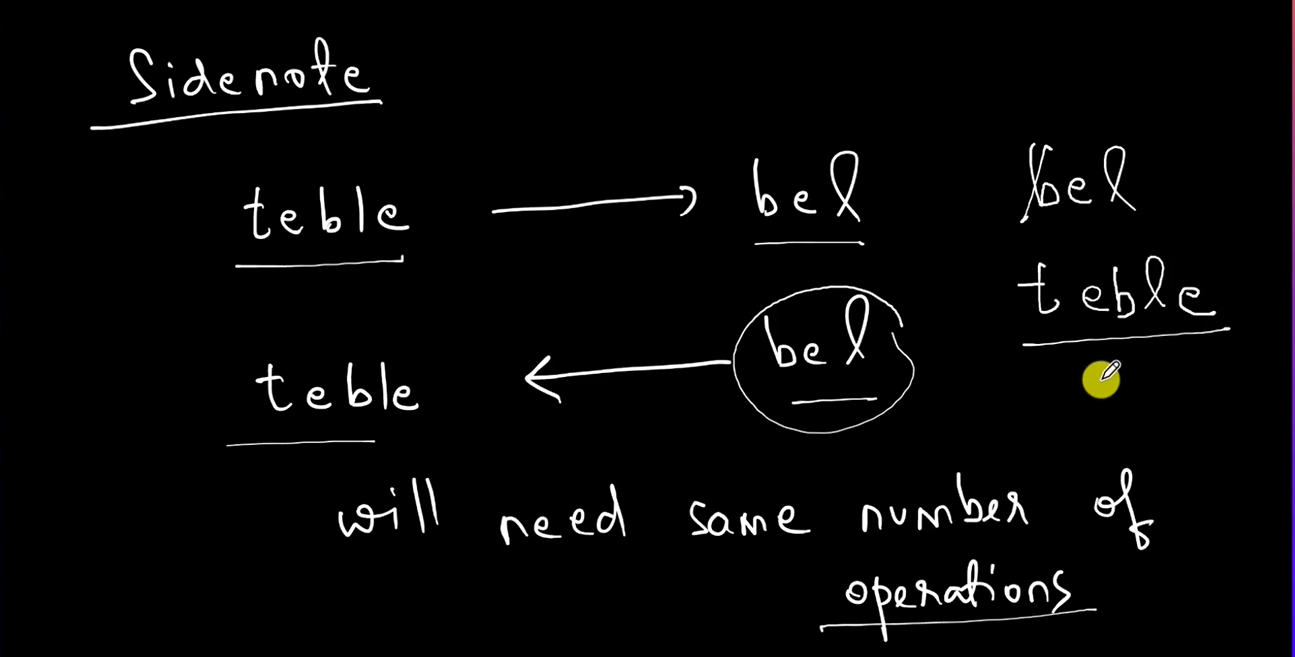 Sidenote
teble → bel
bel
teble
teble ← bel
will need same number of
operations